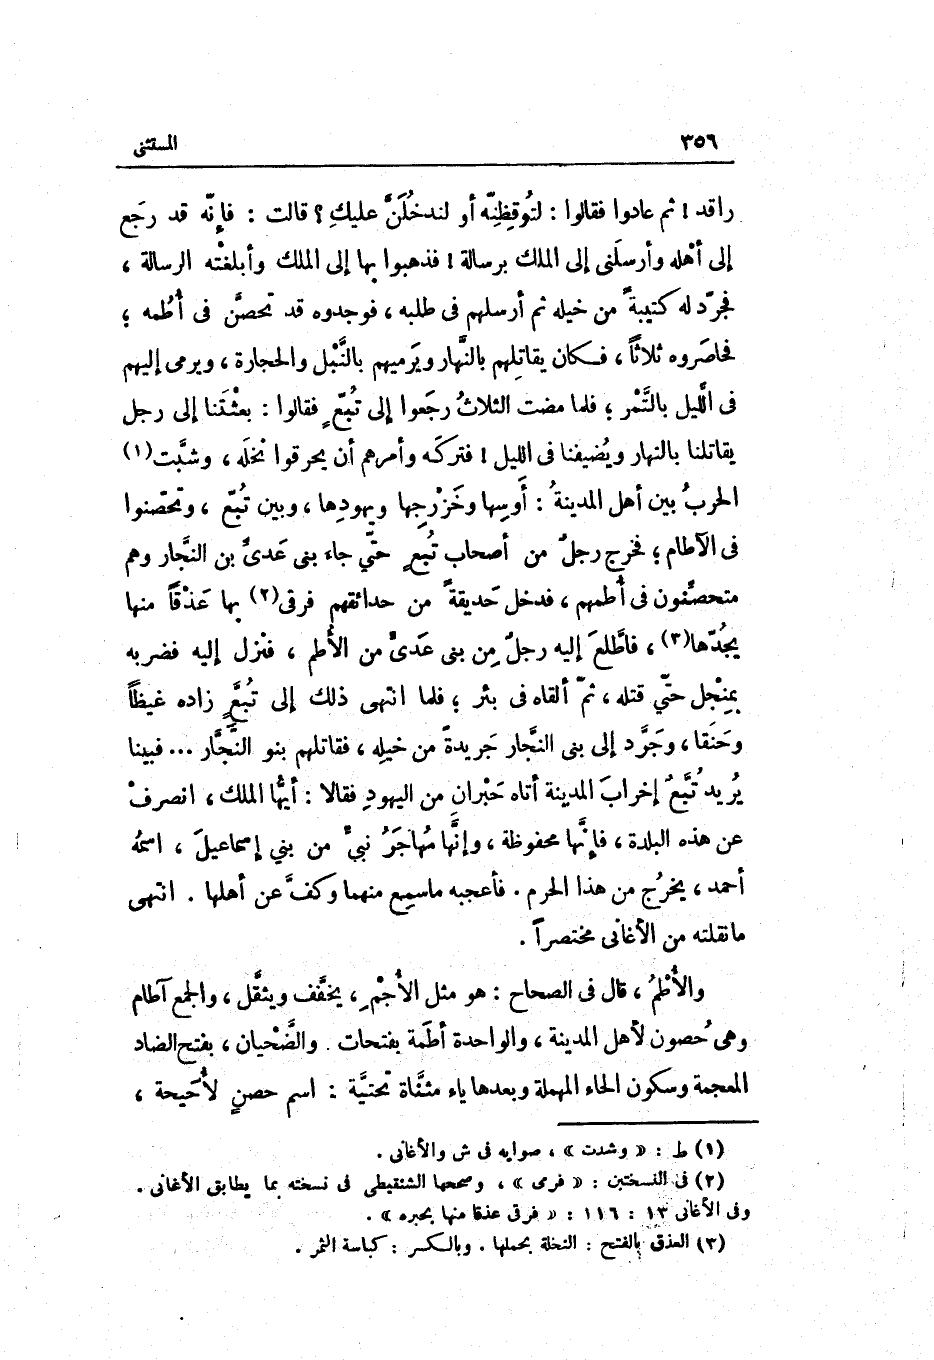 ٣٥٦ المستثنى
راقد ! ثم عادوا فقالوا : لتُوقِظِنِّه أو لندخُلَنَّ عليكِ ؟ قالت : فإنّه قد رجَع
إلى أهْله وأرسلَنى إلى الملك برسالة ! فذهبوا بها إلى الملك وأبلغتْه الرسالة ،
فجرّد له كتيبةً من خيله ثم أرسلهم فى طلبه ، فوجدوه قد تحصَّن فى أُطُمه ؛
فحاصَروه ثلاثاً ، فكان يقاتلِهم بالنَّهار ويَرميهم بالنَّبْل والحجارة ، ويرمى إليهم
فى اللَّيل بالتَّمْر ؛ فلما مضت الثلاثُ رجَعوا إلى تُبّع ٍ فقالوا : بعثْتَنا إلى رجل
يقاتلنا بالنهار ويُضيفنا فى الليل ! فتركَه وأمرهم أن يحرقوا نخلَه ، وشبَّت(١)
الحربُ بين أهل المدينةُ : أَوسِها وخَزْرجِها ويهودِها ، وبين تُبّع ، وتحصّنوا
فى الآطام ؛ فخرج رجلٌ من أصحاب تُبّعٍ حتّي جاء بنى عَدىِّ بن النجَّار وهم
متحصِّنون فى أُطمهم ، فدخل حَديقةً من حدائقهم فرقى(٢) بها عَذْقًا منها
يجُدّها(٣) ، فاطَّلعَ إليه رجلٌ مِن بنى عَدىِّ من الأُطم ، فنزل إليه فضربه
بمِنْجل حتّي قتله ، ثمّ ألقاه فى بئر ؛ فلما انتهى ذلك إلى تُبَّعٍ زاده غيظاً
وحَنَقا ، وجَرَّد إلى بنى النجَّار جَريدةً من خيلِه ، فقاتلهم بنو النَّجَّار ... فبينا
يُريد تُبَّعٌ إخرابَ المدينة أتاه حَبْرانِ من اليهودِ فقالا : أيُّها الملك ، انصرفْ
عن هذه البلدة ، فإنَّها محفوظة ، وإنَّها مُهاجَرُ نبىٍّ من بني إسماعيلَ ، اسمُه
أحمد ، يخرُج من هذا الحرم . فأعجبه ماسمِع منهما وكفَّ عن أهلها . انتهى
مانقلته من الأغانى مختصراً .
والأُطْمُ ، قال فى الصحاح : هو مثل الأُجْمِ ، يخفَّف ويثقَّل ، والجمع آطام
وهى حُصون لأهل المدينة ، والواحدة أطَمة بفتحات . والضَّحْيان ، بفتح الضاد
المعجمة وسكون الحاء المهملة وبعدها ياء مثنَّاة تحتيَّة : اسم حصنٍ لأُحَيحة ،
(١) ط : « وشدت » ، صوابه فى ش والأغانى .
(٢) فى النسختين : « فرى » ، وصححها الشنقيطى فى نسخته بما يطابق الأغانى .
وفى الأغانى ١٣ : ١١٦ : « فرقى عذقا منها بحبره » .
(٣) العذق بالفتح : النخلة بحملها . وبالكسر : كباسة الثمر .